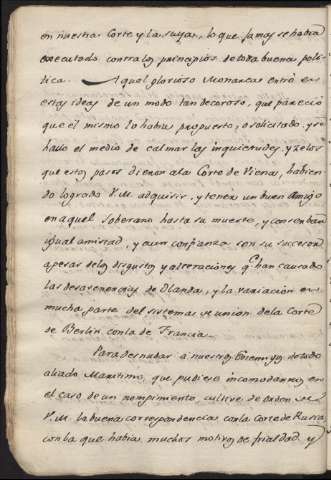 en nuestra Corte y la suya, lo que jamas se habia
executado contra los principios de toda buena poli-
tica. Aquel glorioso Monarca entró en
estas ideas de un modo tan decoroso, que pareció
que él mismo lo habia propuesto, o solicitado. y se
halló el medio de calmar las inquietudes, y zelos
que estos pasos dieron a la Corte de Viena, habien
do logrado V.M. adquirir, y tener un buen Amigo
en aquel soberano hasta su muerte, y conserban
igual amistad, y aun confianza con su succesor
apesar de los disgustos y alteraciones q.e han causado
las desavenencias de Olanda, y la variacion en
mucha parte del sistema de union de la Corte
de Berlin con la de Francia.
Para desnudar a nuestros Enemigos de todo
aliado Maritimo, que pudiese incomodarnos en
el caso de un rompimiento, cultivé de orden de
V.M. la buena correspondencia con la Corte de Rusia
con la que habia muchos motivos de frialdad y